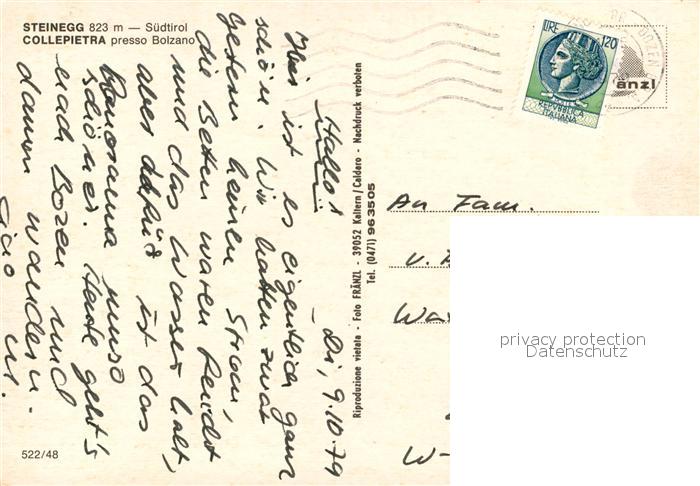 STEINEGG 823 m — Südtirol
COLLEPIETRA presso Bolzano
Hallo! Di, 9.10.79
Hier ist es eigentlich ganz
schön. Wir hatten zwar
gestern keinen Strom,
die Betten waren feucht
und das Wasser kalt,
aber dafür ist das
Panorama umso
schöner. Heute geht's
nach Bozen und
dann wandern.
Ciao
522/48
Riproduzione vietata - Foto FRÄNZL - 39052 Kaltern/Caldaro - Nachdruck verboten
Tel. (0471) 963505
LIRE 120
REPUBBLICA
ITALIANA
BOZEN
änzl
An Fam.
v.
W-
privacy protection
Datenschutz